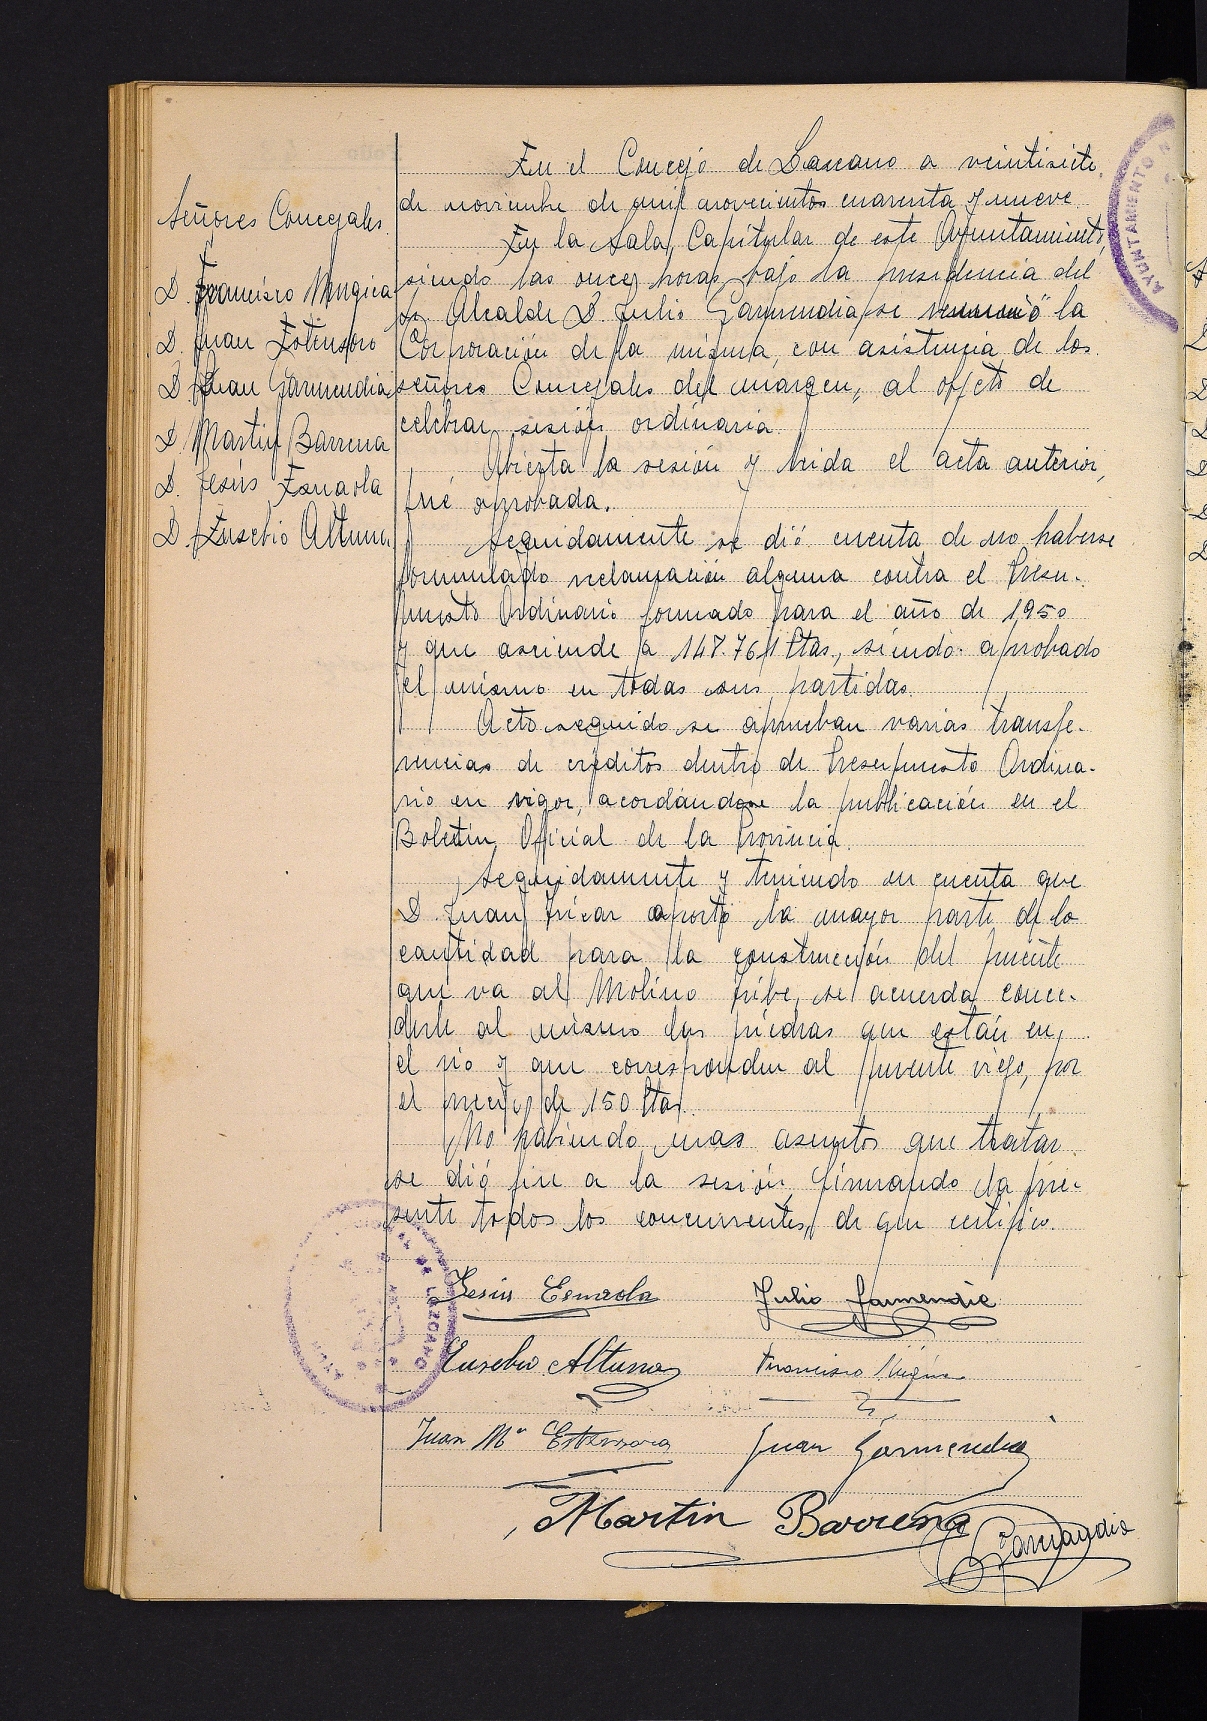 En el Concejo de Lazcano a veintisiete
de noviembre de mil novecientos cuarenta y nueve
En la Sala Capitular de este Ayuntamiento,
siendo las once horas, bajo la presidencia del
Sr. Alcalde D. Julio Garmendia, se reunió la
Corporación de la misma, con asistencia de los
señores Concejales del márgen, al objeto de
celebrar sesión ordinaria.
Señores Concejales.
D. Francisco Mugica
D. Juan Estensoro
D. Juan Garmendia
D. Martin Barrena
D. Jesús Esnaola
D. Eusebio Altuna
Abierta la sesión y leida el acta anterior,
fué aprobada.
Seguidamente se dió cuenta de no haberse
formulado reclamación alguna contra el Presu-
puesto Ordinario formado para el año de 1950
y que asciende a 147.761 Ptas., siendo aprobado
el mismo en todas sus partidas.
Acto seguido se aprueban varias transfe-
rencias de créditos dentro de Presupuesto Ordina-
rio en vigor, acordándose la publicación en el
Boletin Oficial de la Provincia.
Seguidamente y teniendo en cuenta que
D. Juan aportó la mayor parte de la
cantidad para la construcción del puente
que va al Molino Iribe, se acuerda conce-
derle al mismo las piedras que están en
el rio y que corresponden al puente viejo, por
el precio de 150 Ptas.
No habiendo mas asuntos que tratar
se dió fin a la sesión, firmando la pre-
sente todos los concurrentes, de que certifico.
Jesús Esnaola Julio Garmendia
Eusebio Altuna Francisco Mugica
Juan Mª Estensoro Juan Garmendia
Martin Barrena
Garmendia
AYUNTAMIENTO
DE LAZCANO